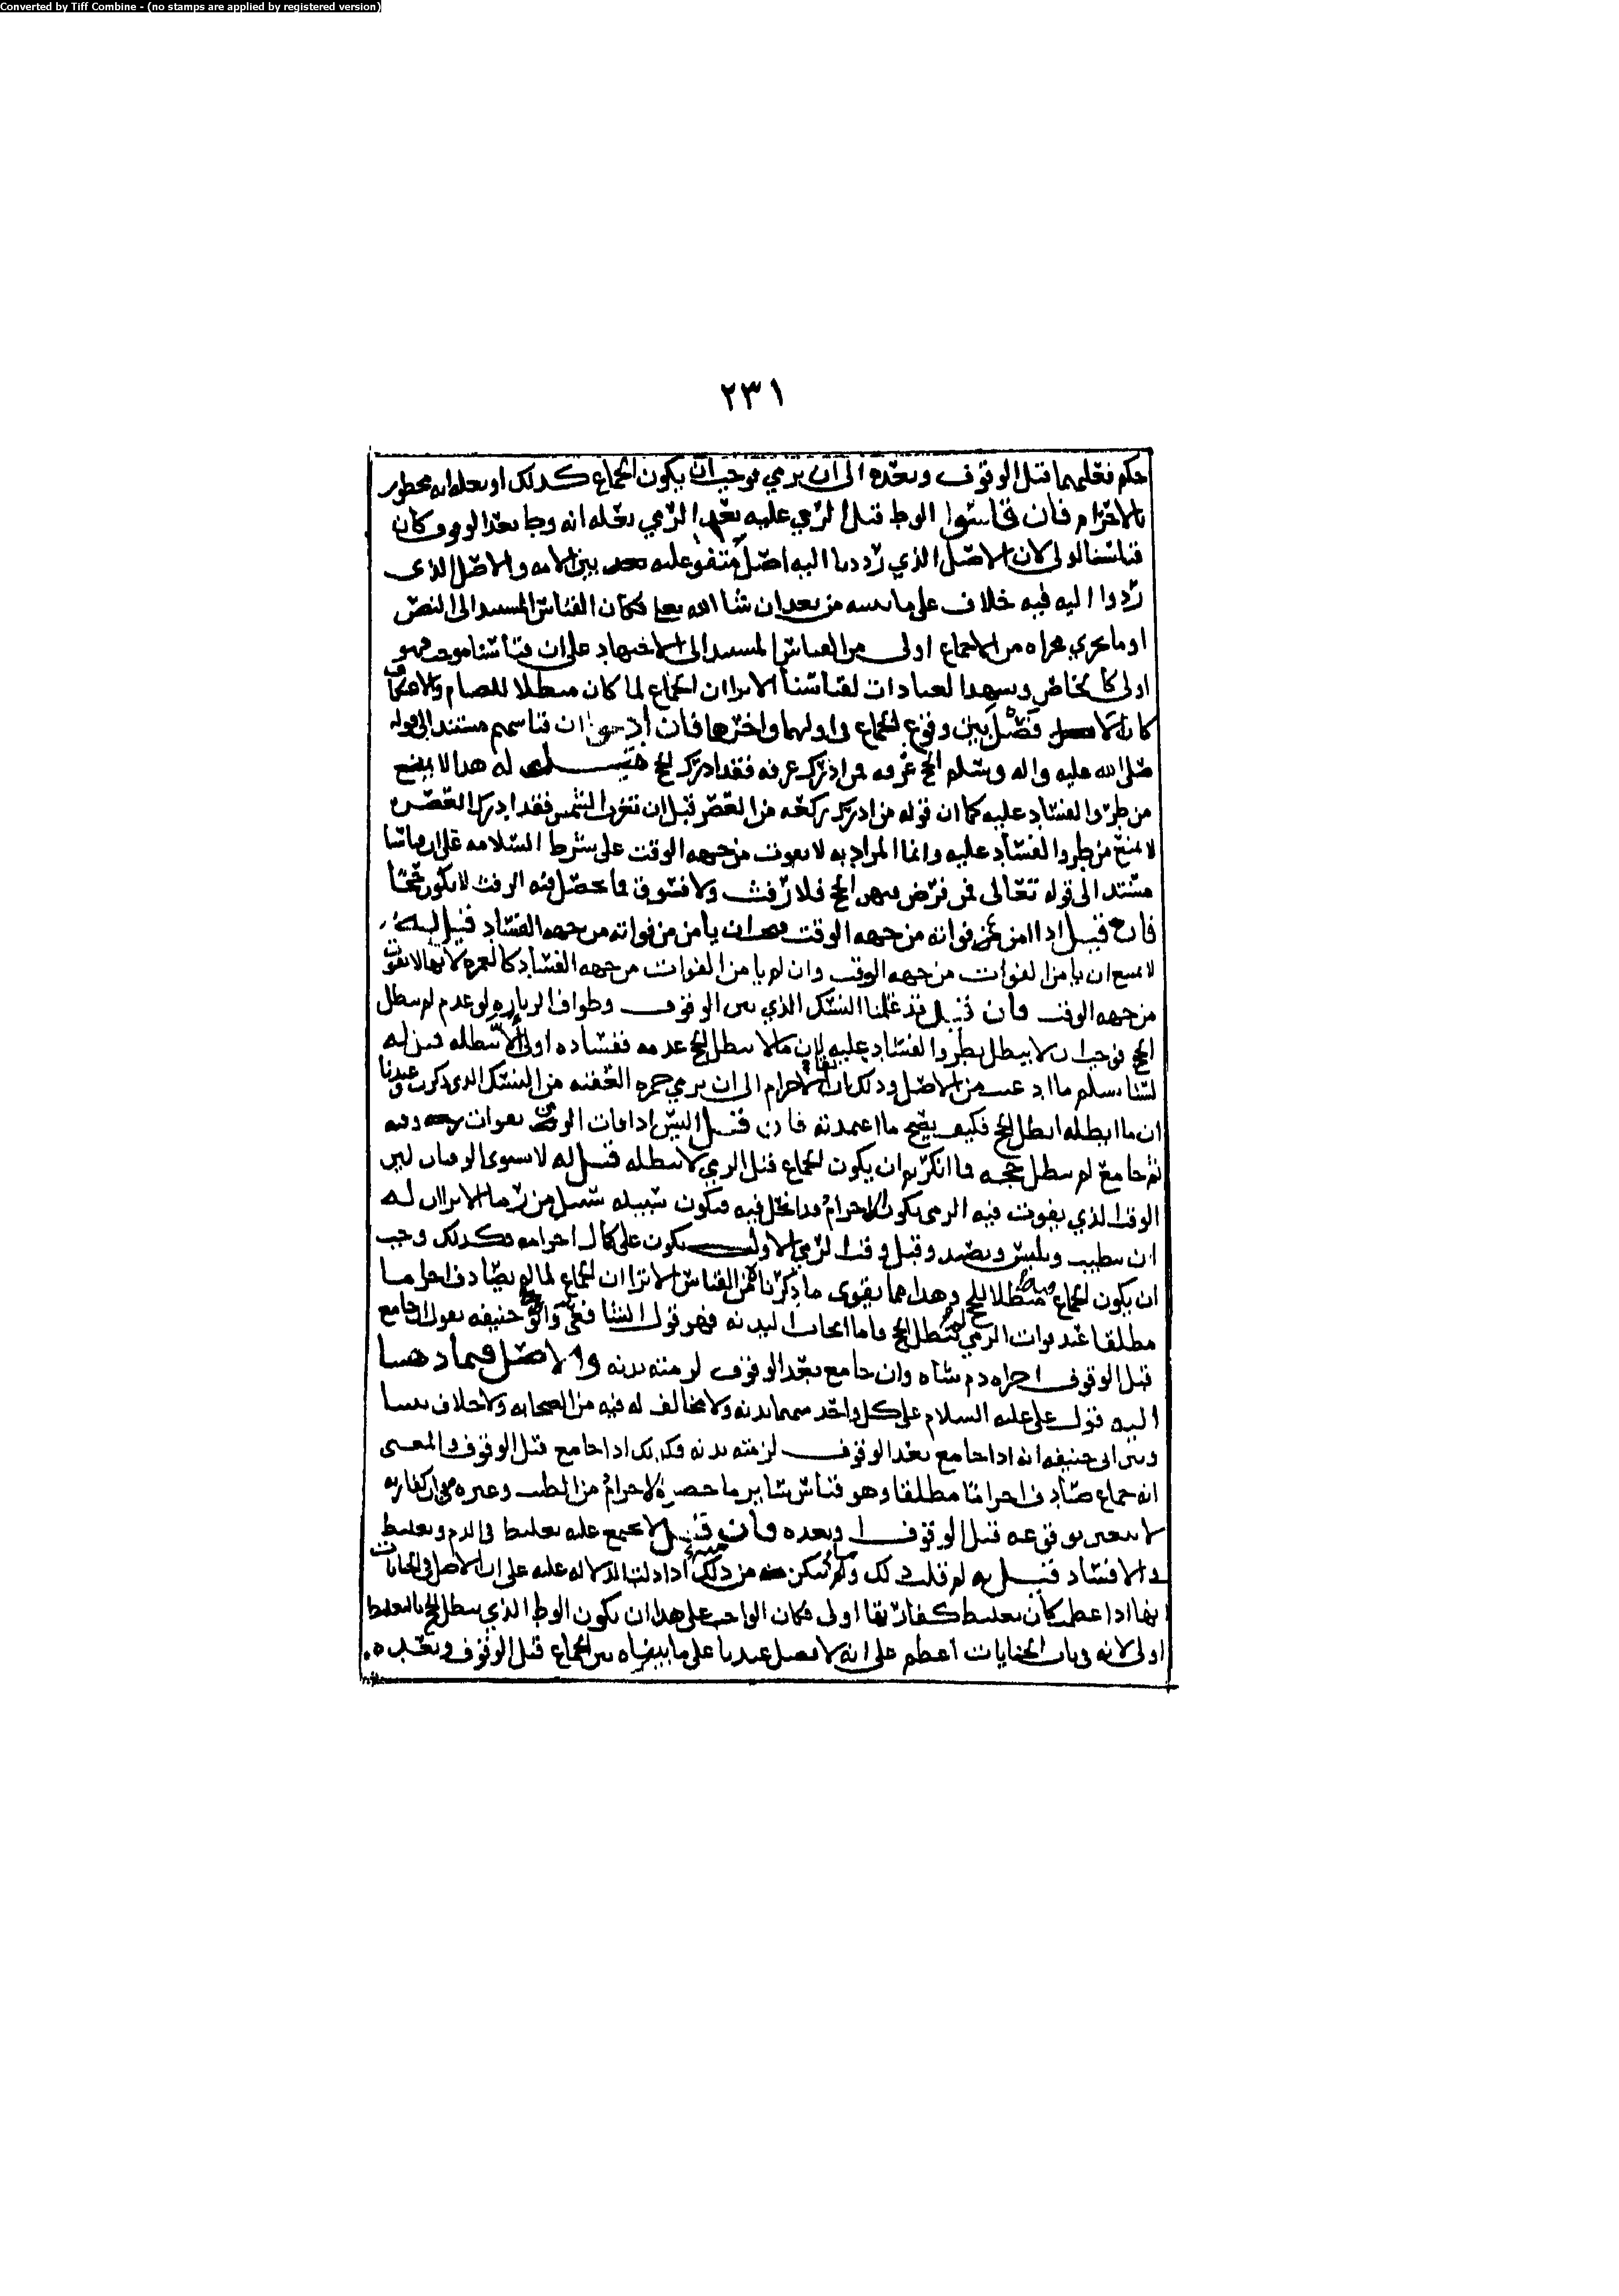 Converted by Tiff Combine - (no stamps are applied by registered version)
٢٣١
حكم فعلهما قبل الوقوف وبعده الى ان يرمي فوجب ان يكون الجماع كذلك او بعله انه محظور
بالاحرام فان قاسوا الوطء قبل الرمي عليه بعد الرمي بعله انه وطء بعد الوقوف كان
قياسنا اولى لان الاصل الذي رددنا اليه اصل متفق عليه بين الامه والاصل الذى
ردوا اليه فيه خلاف على ما نبينه من بعد ان شا الله تعالى فكان القياس المستند الى النص
او ما يجري مجراه من الاجماع اولى من القياس المستند الى الاجتهاد على ان قياسنا موجب فهو
اولى كالحاظر وتشهد العبادات لقياسنا الا ترا ان الجماع لما كان مبطلا للصيام والاعتكاف
كان لا فصل بين وقوع الجماع في اولهما واخرهما فان ادعوا ان قياسهم مستند الى قوله
صلى الله عليه واله وسلم الحج عرفه فمن ادرك عرفه فقد ادرك الحج قيل له هذا لا يمنع
من طروا الفساد عليه كما ان قوله من ادرك ركعه من العصر قبل ان تغرب الشمس فقد ادرك العصر
لا يمنع من طروا الفساد عليه وانما المراد به لا يفوت من جهه الوقت على شرط السلامه على ان قياسنا
مستند الى قوله تعالى فمن فرض فيهن الحج فلا رفث ولا فسوق فما حصل فيه الرفث لا يكون حجا
فان قيل اذا امن من فواته من جهه الوقت يجب ان يامن من فواته من جهه الفساد قيل له
لا يمنع ان يامن الفوات من جهه الوقت وان لم يامن الفوات من جهه الفساد كالعمره لانها لا تفوت
من جهه الوقت فان قيل قد علمنا النسك الذي بين الوقوف وطواف الزياره لو عدم لم يبطل
الحج فوجب ان لا يبطل بطروا الفساد عليه لان ما لا يبطل الحج عدمه ففساده اولى الا يبطله قيل له
لسنا نسلم ما ادعيت من الاصل وذلك ان بقاء الاحرام الى ان يرمي جمره العقبه من النسك الذى ذكرت وعندنا
ان ما ابطله ابطل الحج فكيف يصح ما اعتمدته فان قيل اليس اذا فات الرمي بفوات وقته
ثم جامع لم يبطل حجه فما انكرتم ان يكون الجماع قبل الرمي لا يبطله قيل له لا يستوى الوقتان لان
الوقت الذي يفوت فيه الرمى يكون الاحرام قد انحل فيه فيكون سبيله سبيل من رما الا ترا ان له
ان يتطيب ويلبس ويصيد وقبل وقت الرمي الاول يكون على كمال احرامه فكذلك وجب
ان يكون الجماع فيه مبطلا للحج وهذا مما يقوى ما ذكرناه من القياس الا ترا ان الجماع لما لم يصادف احراما
مطلقا عند فوات الرمي لم يبطل الحج فاما ايجاب البدنه فهو قول الشافعي وابو حنيفه يقول ان جامع
قبل الوقوف اجزاه دم شاه وان جامع بعد الوقوف لزمته بدنه والاصل فيما ذهبنا
اليه قول علي عليه السلام على كل واحد منهما بدنه ولا مخالف له فيه من الصحابه ولا خلاف بيننا
وبين ابى حنيفه انه اذا جامع بعد الوقوف لزمته بدنه فكذلك اذا جامع قبل الوقوف والمعنى
انه جماع صادف احراما مطلقا وهو قياس سائر ما حصره الاحرام من الطيب وغيره في ان كفارته
لا تتغير بوقوعه قبل الوقوف وبعده فان قيل لا يجمع عليه تغليظ في الدم وتغليظ
في الافساد قيل له لم قلت ذلك ولم تمكن من ذلك اذا دلت الدلاله عليه على ان الاصل في الجنايات
انها اذا عظم كان تغليظ كفارتها اولى فكان الواجب على هذا ان يكون الوطء الذي يبطل الحج بالتغليظ
اولى لانه في باب الجنايات اعظم على انه لا فصل عندنا على ما بيناه بين الجماع قبل الوقوف وبعده